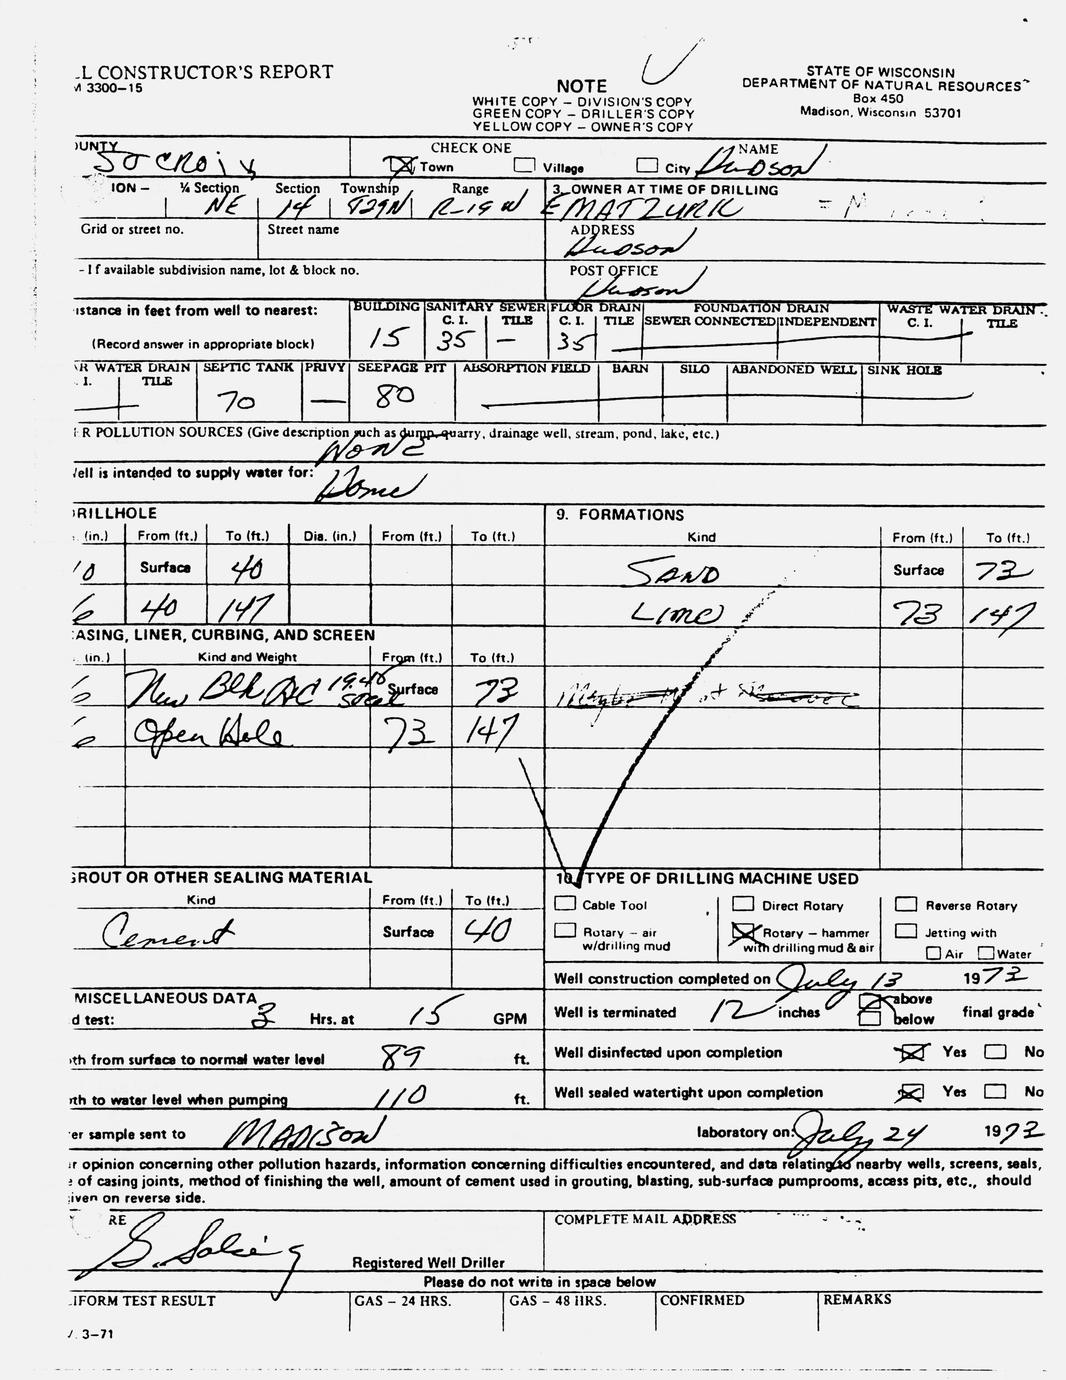 L CONSTRUCTOR'S REPORT
M 3300-15
NOTE
WHITE COPY – DIVISION'S COPY
GREEN COPY – DRILLER'S COPY
YELLOW COPY – OWNER'S COPY
STATE OF WISCONSIN
DEPARTMENT OF NATURAL RESOURCES
Box 450
Madison, Wisconsin 53701
OUNTY CHECK ONE NAME
ST CROIX Town Village City Hudson
ION – ¼ Section Section Township Range 3. OWNER AT TIME OF DRILLING
NE 14 T29N R-19 W E MATZURK
Grid or street no. Street name ADDRESS
Hudson
- If available subdivision name, lot & block no. POST OFFICE
Hudson
istance in feet from well to nearest: BUILDING SANITARY SEWER FLOOR DRAIN FOUNDATION DRAIN WASTE WATER DRAIN
C. I. TILE C. I. TILE SEWER CONNECTED INDEPENDENT C. I. TILE
(Record answer in appropriate block) 15 35 – 35
R WATER DRAIN SEPTIC TANK PRIVY SEEPAGE PIT ABSORPTION FIELD BARN SILO ABANDONED WELL SINK HOLE
I. TILE
70 — 80
R POLLUTION SOURCES (Give description such as dump, quarry, drainage well, stream, pond, lake, etc.)
NONE
Well is intended to supply water for: Home
DRILLHOLE 9. FORMATIONS
. (in.) From (ft.) To (ft.) Dia. (in.) From (ft.) To (ft.) Kind From (ft.) To (ft.)
10 Surface 40 SAND Surface 73
6 40 147 LIME 73 147
ASING, LINER, CURBING, AND SCREEN
. (in.) Kind and Weight From (ft.) To (ft.)
6 New Blk 19.45 Surface 73
6 Open Hole 73 147
GROUT OR OTHER SEALING MATERIAL 10. TYPE OF DRILLING MACHINE USED
Kind From (ft.) To (ft.) Cable Tool Direct Rotary Reverse Rotary
Cement Surface 40 Rotary – air w/drilling mud Rotary – hammer with drilling mud & air Jetting with
Air Water
Well construction completed on July 13 1973
MISCELLANEOUS DATA
d test: 3 Hrs. at 15 GPM Well is terminated 12 inches above below final grade
th from surface to normal water level 89 ft. Well disinfected upon completion Yes No
th to water level when pumping 110 ft. Well sealed watertight upon completion Yes No
er sample sent to MADISON laboratory on: July 24 1973
r opinion concerning other pollution hazards, information concerning difficulties encountered, and data relating to nearby wells, screens, seals,
e of casing joints, method of finishing the well, amount of cement used in grouting, blasting, sub-surface pumprooms, access pits, etc., should
iven on reverse side.
RE COMPLETE MAIL ADDRESS
Registered Well Driller
Please do not write in space below
IFORM TEST RESULT GAS – 24 HRS. GAS – 48 HRS. CONFIRMED REMARKS
. 3-71